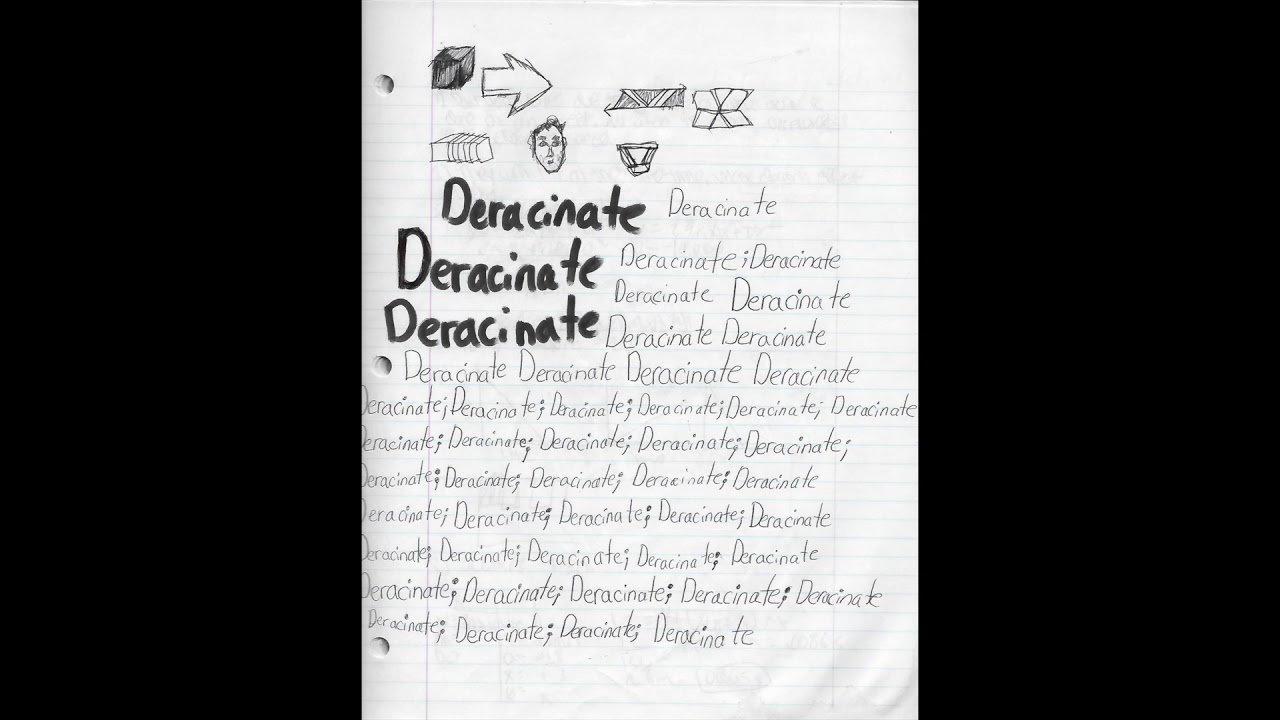 Deracinate Deracinate
Deracinate Deracinate; Deracinate
Deracinate Deracinate
Deracinate Deracinate Deracinate
Deracinate Deracinate Deracinate Deracinate
Deracinate; Deracinate; Deracinate; Deracinate; Deracinate; Deracinate
Deracinate; Deracinate; Deracinate; Deracinate; Deracinate;
Deracinate; Deracinate; Deracinate; Deracinate; Deracinate
Deracinate; Deracinate; Deracinate; Deracinate; Deracinate
Deracinate; Deracinate; Deracinate; Deracinate; Deracinate
Deracinate; Deracinate; Deracinate; Deracinate; Deracinate
Deracinate; Deracinate; Deracinate; Deracinate